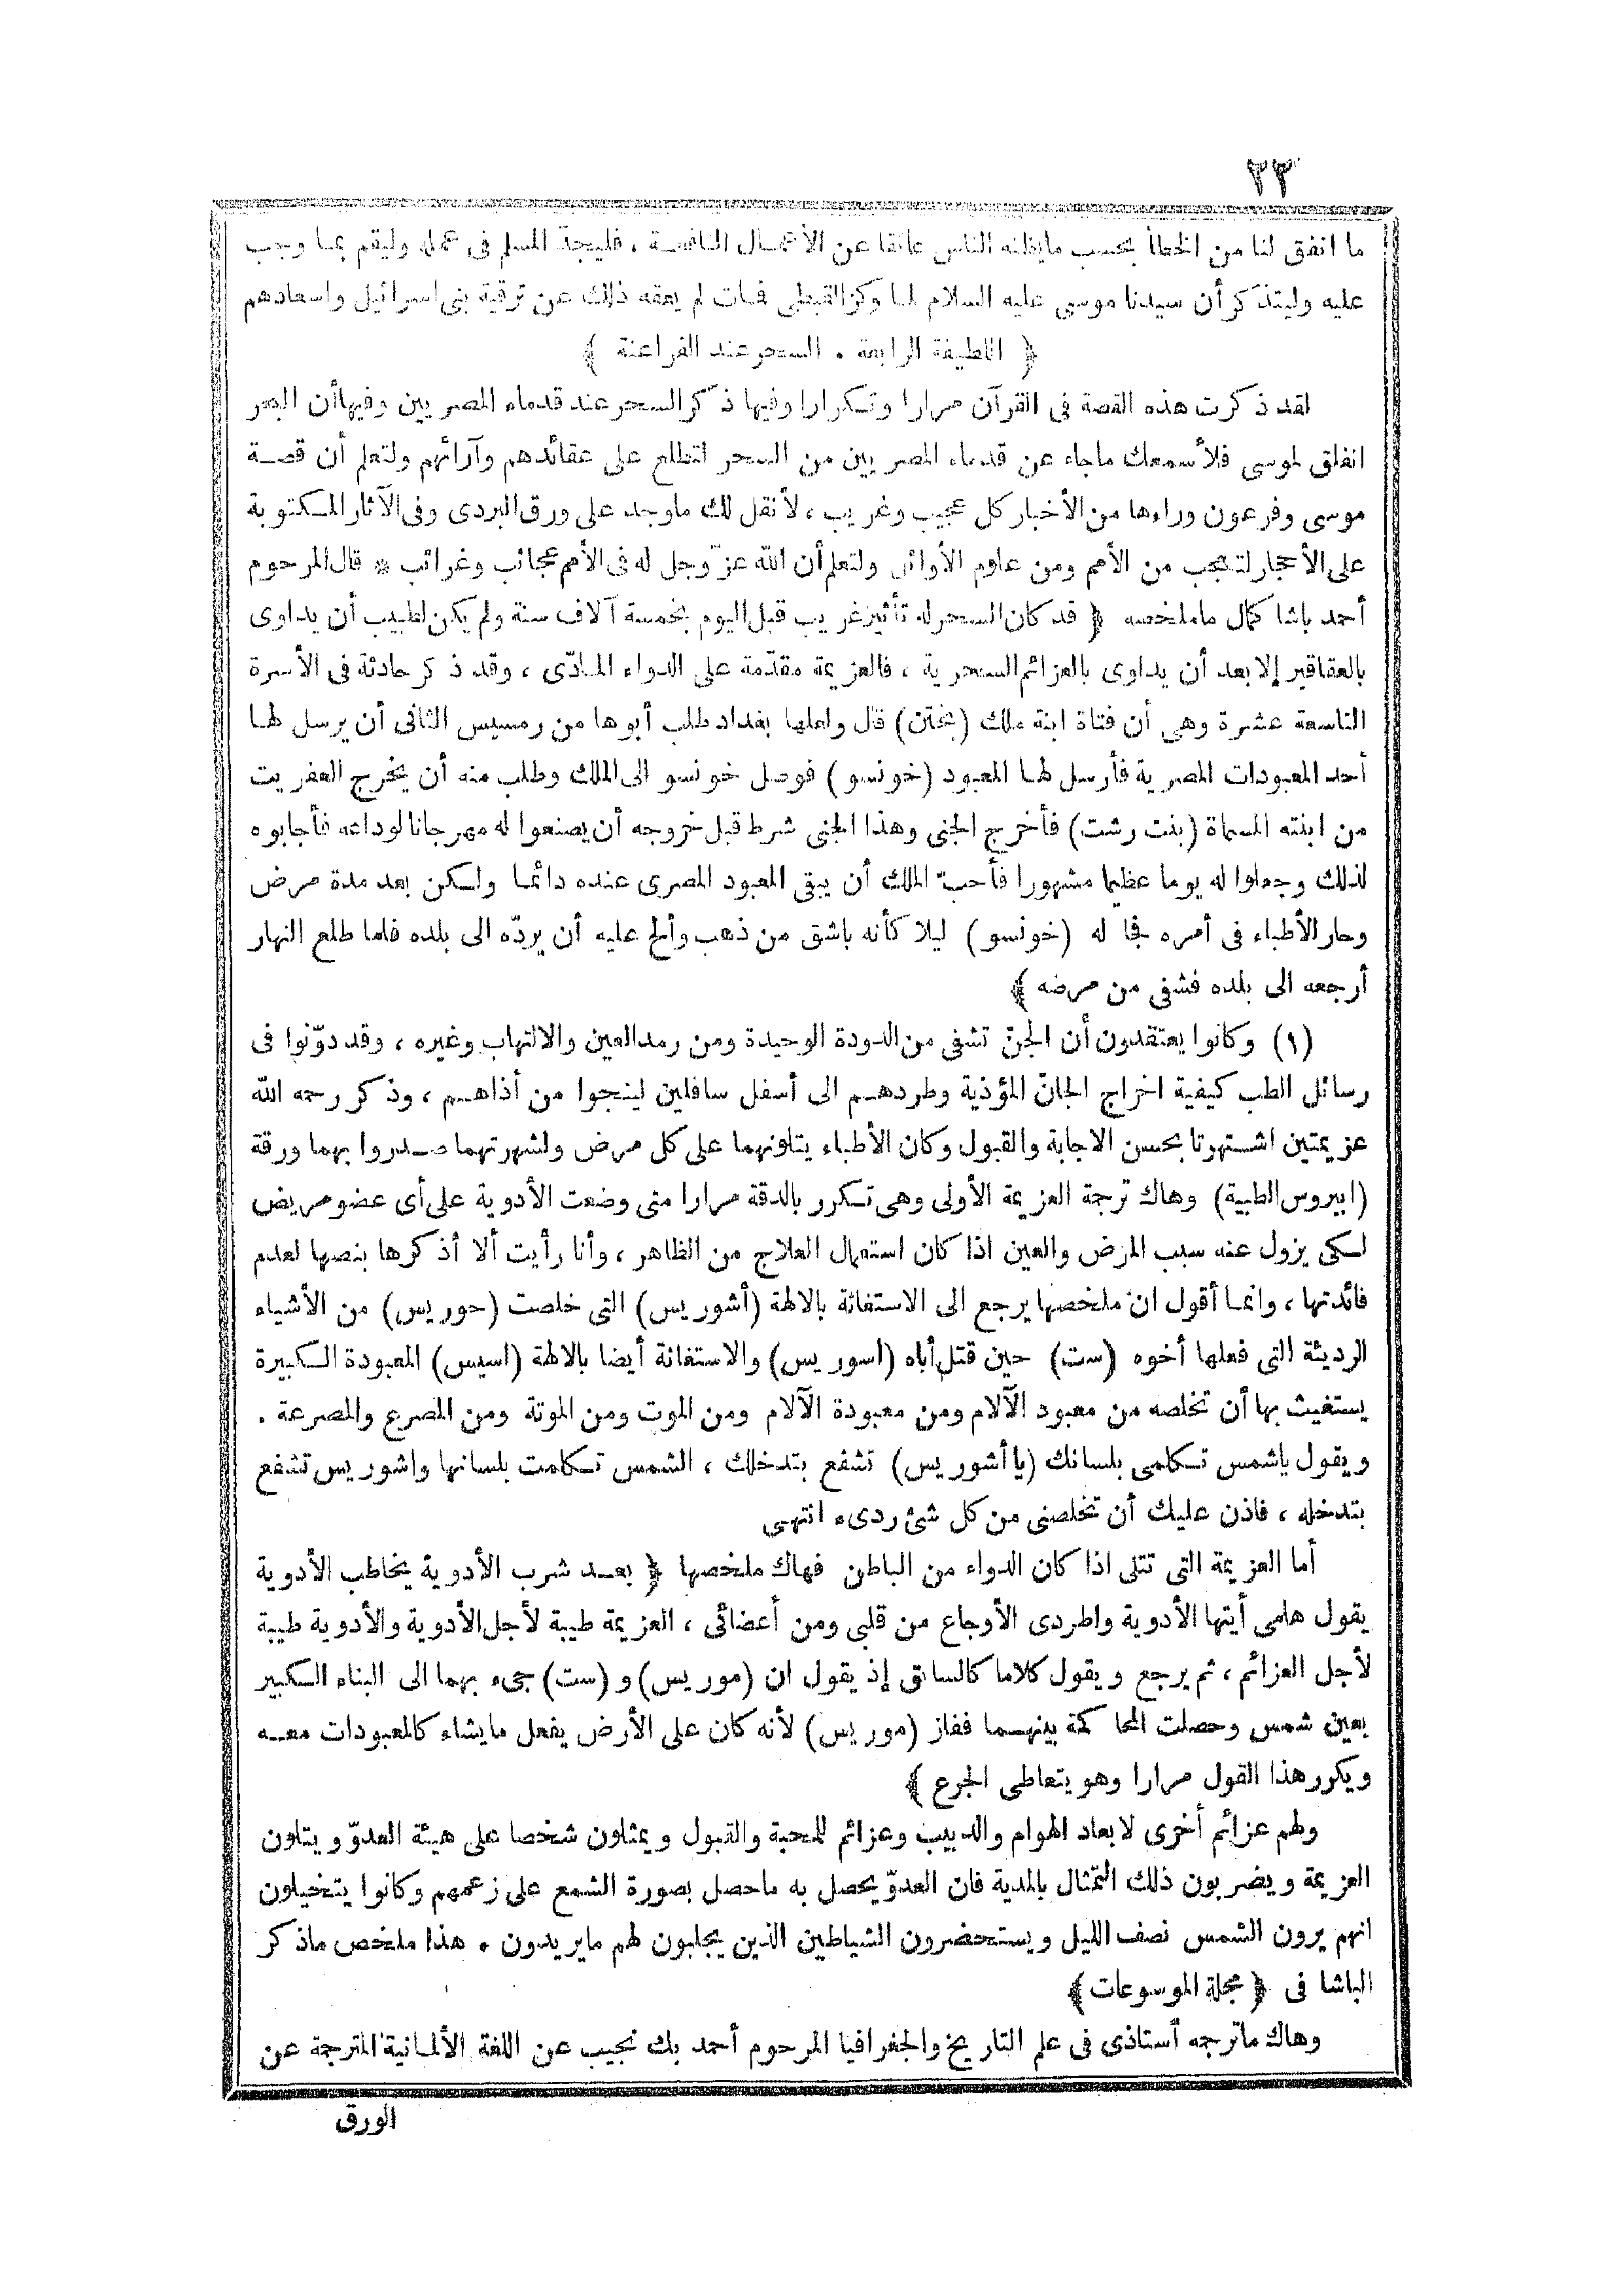 ٢٣
ما اتفق لنا من الخطأ بحسب مايظنه الناس عائقا عن الأعمال النافعة ، فليجدّ المسلم فى عمله وليقم بما وجب
عليه وليتذكر أن سيدنا موسى عليه السلام لما وكز القبطى فمات لم يعقه ذلك عن ترقية بنى اسرائيل واسعادهم
﴿ اللطيفة الرابعة . السحر عند الفراعنة ﴾
لقد ذكرت هذه القصة فى القرآن مرارا وتكرارا وفيها ذكر السحر عند قدماء المصريين وفيها أن البحر
انفلق لموسى فلأسمعك ماجاء عن قدماء المصريين من السحر لتطلع على عقائدهم وآرائهم ولتعلم أن قصة
موسى وفرعون وراءها من الأخبار كل عجيب وغريب ، لأنقل لك ماوجد على ورق البردى وفى الآثار المكتوبة
على الأحجار لتعجب من الأمم ومن علوم الأوائل ولتعلم أن الله عزّ وجل له فى الأمم عجائب وغرائب * قال المرحوم
أحمد باشا كمال ماملخصه ﴿ قد كان السحر له تأثير غريب قبل اليوم بخمسة آلاف سنة ولم يكن لطبيب أن يداوى
بالعقاقير إلا بعد أن يداوى بالعزائم السحرية ، فالعزيمة مقدّمة على الدواء المادّى ، وقد ذكر حادثة فى الأسرة
التاسعة عشرة وهى أن فتاة ابنة ملك (بختن) قال ولعلها بغداد طلب أبوها من رمسيس الثانى أن يرسل لها
أحد المعبودات المصرية فأرسل لها المعبود (خونسو) فوصل خونسو الى الملك وطلب منه أن يخرج العفريت
من ابنته المسماة (بنت رشت) فأخرج الجنى وهذا الجنى شرط قبل خروجه أن يصنعوا له مهرجانا لوداعه فأجابوه
لذلك وجعلوا له يوما عظيما مشهورا فأحبّ الملك أن يبقى المعبود المصرى عنده دائما ولكن بعد مدة مرض
وحار الأطباء فى أمره فجا له (خونسو) ليلا كأنه باشق من ذهب وألح عليه أن يردّه الى بلده فلما طلع النهار
أرجعه الى بلده فشفى من مرضه ﴾
(١) وكانوا يعتقدون أن الجنّ تشفى من الدودة الوحيدة ومن رمد العين والالتهاب وغيره ، وقد دوّنوا فى
رسائل الطب كيفية اخراج الجانّ المؤذية وطردهم الى أسفل سافلين لينجوا من أذاهم ، وذكر رحمه الله
عزيمتين اشتهرتا بحسن الاجابة والقبول وكان الأطباء يتلونهما على كل مرض ولشهرتهما صدروا بهما ورقة
(ايبروس الطبية) وهاك ترجمة العزيمة الأولى وهى تكرر بالدقة مرارا متى وضعت الأدوية على أى عضو مريض
لكى يزول عنه سبب المرض والعين اذا كان استعمال العلاج من الظاهر ، وأنا رأيت ألا أذكرها بنصها لعدم
فائدتها ، وانما أقول ان ملخصها يرجع الى الاستغاثة بالالهة (أشوريس) التى خلصت (حوريس) من الأشياء
الرديئة التى فعلها أخوه (ست) حين قتل أباه (اسوريس) والاستغاثة أيضا بالالهة (اسيس) المعبودة الكبيرة
يستغيث بها أن تخلصه من معبود الآلام ومن معبودة الآلام ومن الموت ومن الموتة ومن المصرع والمصرعة .
ويقول ياشمس تكلمى بلسانك (يا أشوريس) تشفع بتدخلك ، الشمس تكلمت بلسانها واشوريس تشفع
بتدخله ، فاذن عليك أن تخلصنى من كل شئ ردىء انتهى
أما العزيمة التى تتلى اذا كان الدواء من الباطن فهاك ملخصها ﴿ بعد شرب الأدوية يخاطب الأدوية
يقول هلمى أيتها الأدوية واطردى الأوجاع من قلبى ومن أعضائى ، العزيمة طيبة لأجل الأدوية والأدوية طيبة
لأجل العزائم ، ثم يرجع ويقول كلاما كالسابق إذ يقول ان (موريس) و (ست) جىء بهما الى البناء الكبير
بعين شمس وحصلت المحاكمة بينهما ففاز (موريس) لأنه كان على الأرض يفعل مايشاء كالمعبودات معه
ويكرر هذا القول مرارا وهو يتعاطى الجرع ﴾
ولهم عزائم أخرى لابعاد الهوام والدبيب وعزائم للمحبة والقبول ويمثلون شخصا على هيئة العدوّ ويتلون
العزيمة ويضربون ذلك التمثال بالمدية فان العدوّ يحصل به ماحصل بصورة الشمع على زعمهم وكانوا يتخيلون
انهم يرون الشمس نصف الليل ويستحضرون الشياطين الذين يجلبون لهم مايريدون . هذا ملخص ماذكر
الباشا فى ﴿ مجلة الموسوعات ﴾
وهاك ماترجمه أستاذى فى علم التاريخ والجغرافيا المرحوم أحمد بك نجيب عن اللغة الألمانية المترجمة عن
الورق